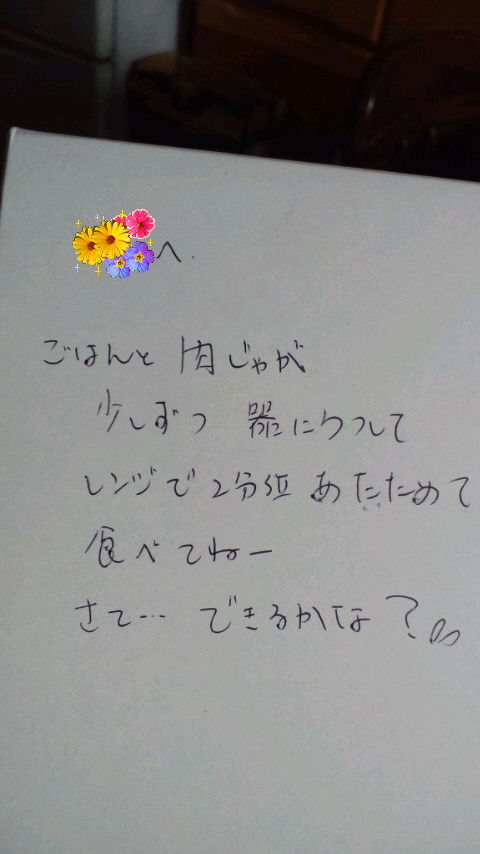 へ.
ごはんと 肉じゃが
少しずつ 器にうつして
レンジで 2分位 あたためて
食べてねー
さて… できるかな?